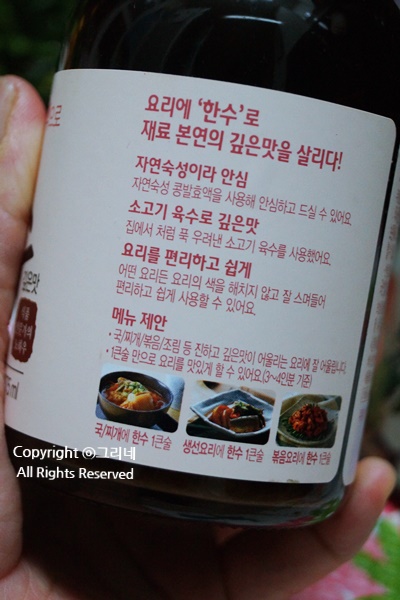 요리에 '한수'로
재료 본연의 깊은맛을 살리다!
자연숙성이라 안심
자연숙성 콩발효액을 사용해 안심하고 드실 수 있어요.
소고기 육수로 깊은맛
집에서 처럼 푹 우려낸 소고기 육수를 사용했어요.
요리를 편리하고 쉽게
어떤 요리든 요리의 색을 해치지 않고 잘 스며들어
편리하고 쉽게 사용할 수 있어요.
메뉴 제안
• 국/찌개/볶음/조림 등 진하고 깊은맛이 어울리는 요리에 잘 어울립니다.
1큰술 만으로 요리를 맛있게 할 수 있어요.(3~4인분 기준)
국/찌개에 한수 1큰술
생선요리에 한수 1큰술
볶음요리에 한수 1큰술
으로
깊은맛
ml
Copyright ⓒ그리네
All Rights Reserved